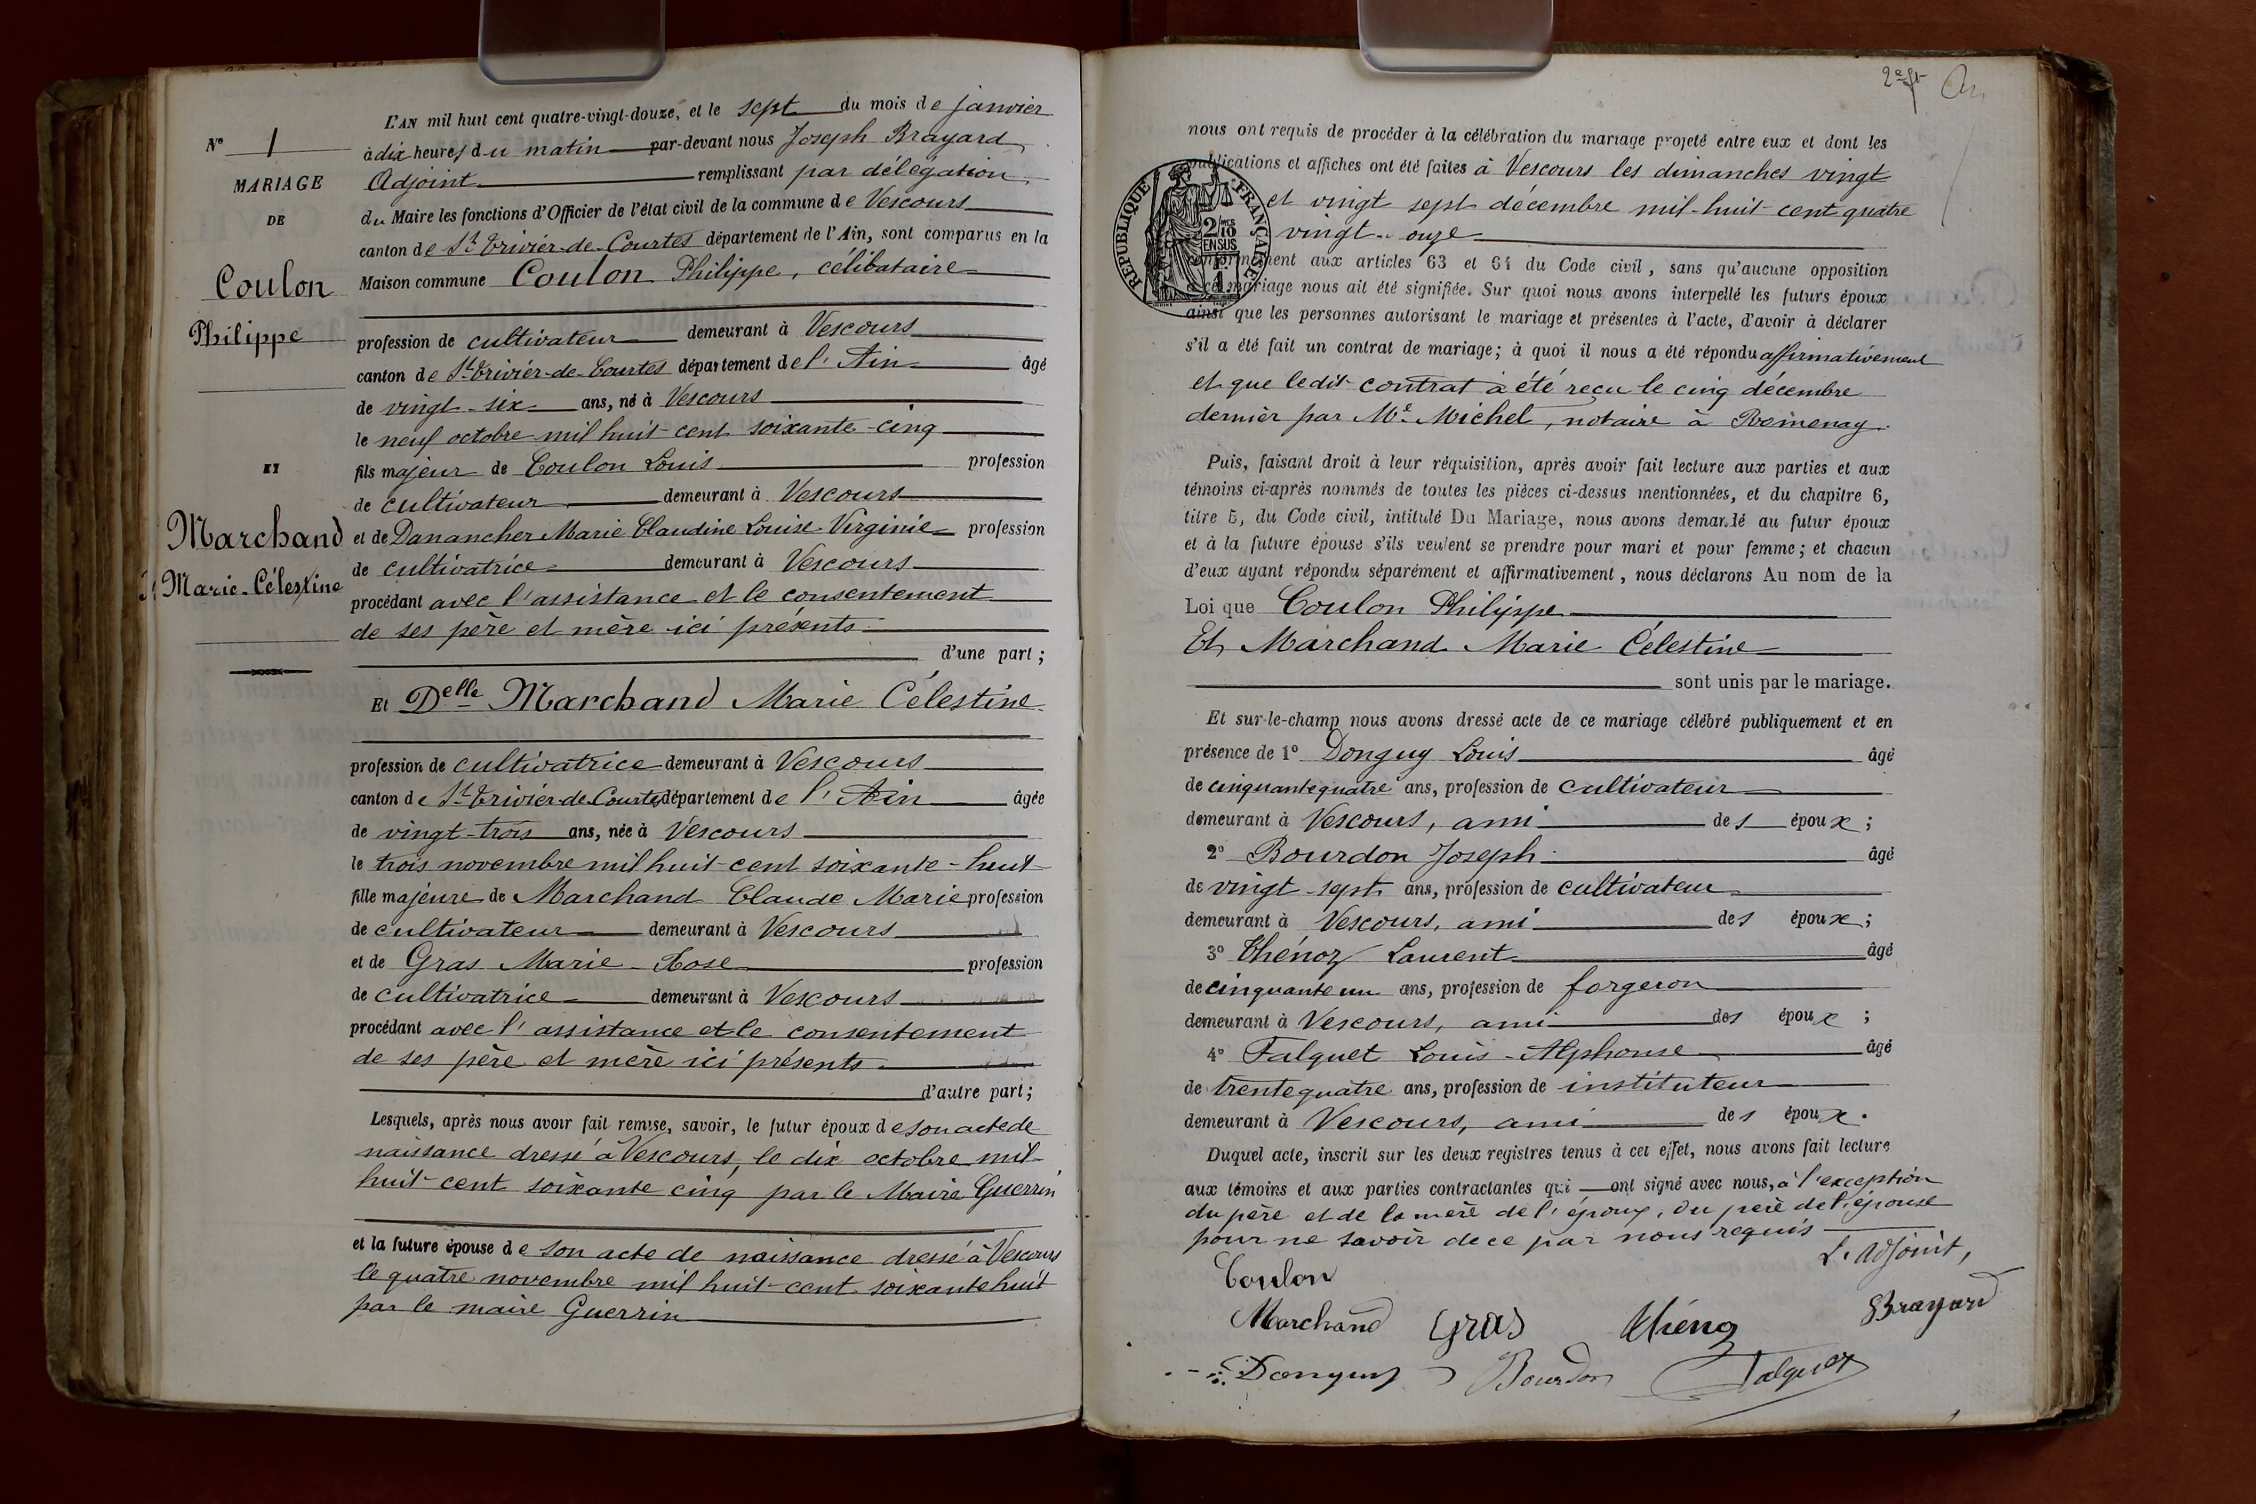 N° 1
MARIAGE
DE
Coulon
Philippe
ET
Marchand
Marie-Célestine
L'AN mil huit cent quatre-vingt-douze, et le sept du mois de janvier
à dix heures du matin par-devant nous Joseph Brayard
Adjoint remplissant par délégation
du Maire les fonctions d'Officier de l'état civil de la commune de Vescours
canton de St Trivier-de-Courtes département de l'Ain, sont comparus en la
Maison commune Coulon Philippe, célibataire
profession de cultivateur demeurant à Vescours
canton de St Trivier-de-Courtes département de l'Ain âgé
de vingt-six ans, né à Vescours
le neuf octobre mil huit cent soixante-cinq
fils majeur de Coulon Louis profession
de cultivateur demeurant à Vescours
et de Danancher Marie Claudine Louise Virginie profession
de cultivatrice demeurant à Vescours
procédant avec l'assistance et le consentement
de ses père et mère ici présents
d'une part ;
Et Delle Marchand Marie Célestine
profession de cultivatrice demeurant à Vescours
canton de St Trivier-de-Courtes département de l'Ain âgée
de vingt-trois ans, née à Vescours
le trois novembre mil huit cent soixante-huit
fille majeure de Marchand Claude Marie profession
de cultivateur demeurant à Vescours
et de Gras Marie-Rose profession
de cultivatrice demeurant à Vescours
procédant avec l'assistance et le consentement
de ses père et mère ici présents
d'autre part ;
Lesquels, après nous avoir fait remise, savoir, le futur époux de son acte de
naissance dressé à Vescours, le dix octobre mil
huit cent soixante cinq par le Maire Guerrin
et la future épouse de son acte de naissance dressé à Vescours
le quatre novembre mil huit cent soixante huit
par le maire Guerrin
nous ont requis de procéder à la célébration du mariage projeté entre eux et dont les
publications et affiches ont été faites à Vescours les dimanches vingt
et vingt sept décembre mil-huit cent quatre
vingt-onze
RÉPUBLIQUE FRANÇAISE
2/10 EN SUS
conformément aux articles 63 et 64 du Code civil, sans qu'aucune opposition
à ce mariage nous ait été signifiée. Sur quoi nous avons interpellé les futurs époux
ainsi que les personnes autorisant le mariage et présentes à l'acte, d'avoir à déclarer
s'il a été fait un contrat de mariage ; à quoi il nous a été répondu affirmativement
et que ledit contrat a été reçu le cinq décembre
dernier par Me Michel, notaire à Romenay.
Puis, faisant droit à leur réquisition, après avoir fait lecture aux parties et aux
témoins ci-après nommés de toutes les pièces ci-dessus mentionnées, et du chapitre 6,
titre 5, du Code civil, intitulé Du Mariage, nous avons demandé au futur époux
et à la future épouse s'ils veulent se prendre pour mari et pour femme ; et chacun
d'eux ayant répondu séparément et affirmativement, nous déclarons Au nom de la
Loi que Coulon Philippe
Et Marchand Marie Célestine
sont unis par le mariage.
Et sur-le-champ nous avons dressé acte de ce mariage célébré publiquement et en
présence de 1° Donguy Louis âgé
de cinquante quatre ans, profession de cultivateur
demeurant à Vescours, ami des époux ;
2° Bourdon Joseph âgé
de vingt-sept ans, profession de cultivateur
demeurant à Vescours, ami des époux ;
3° Thénoz Laurent âgé
de cinquante un ans, profession de forgeron
demeurant à Vescours, ami des époux ;
4° Falquet Louis-Alphonse âgé
de trente quatre ans, profession de instituteur
demeurant à Vescours, ami des époux.
Duquel acte, inscrit sur les deux registres tenus à cet effet, nous avons fait lecture
aux témoins et aux parties contractantes qui ont signé avec nous, à l'exception
du père et de la mère de l'époux, du père de l'épouse
pour ne savoir de ce par nous requis
L'adjoint,
Coulon
Marchand Gras Thénoz Brayard
Donguy Bourdon Falquet